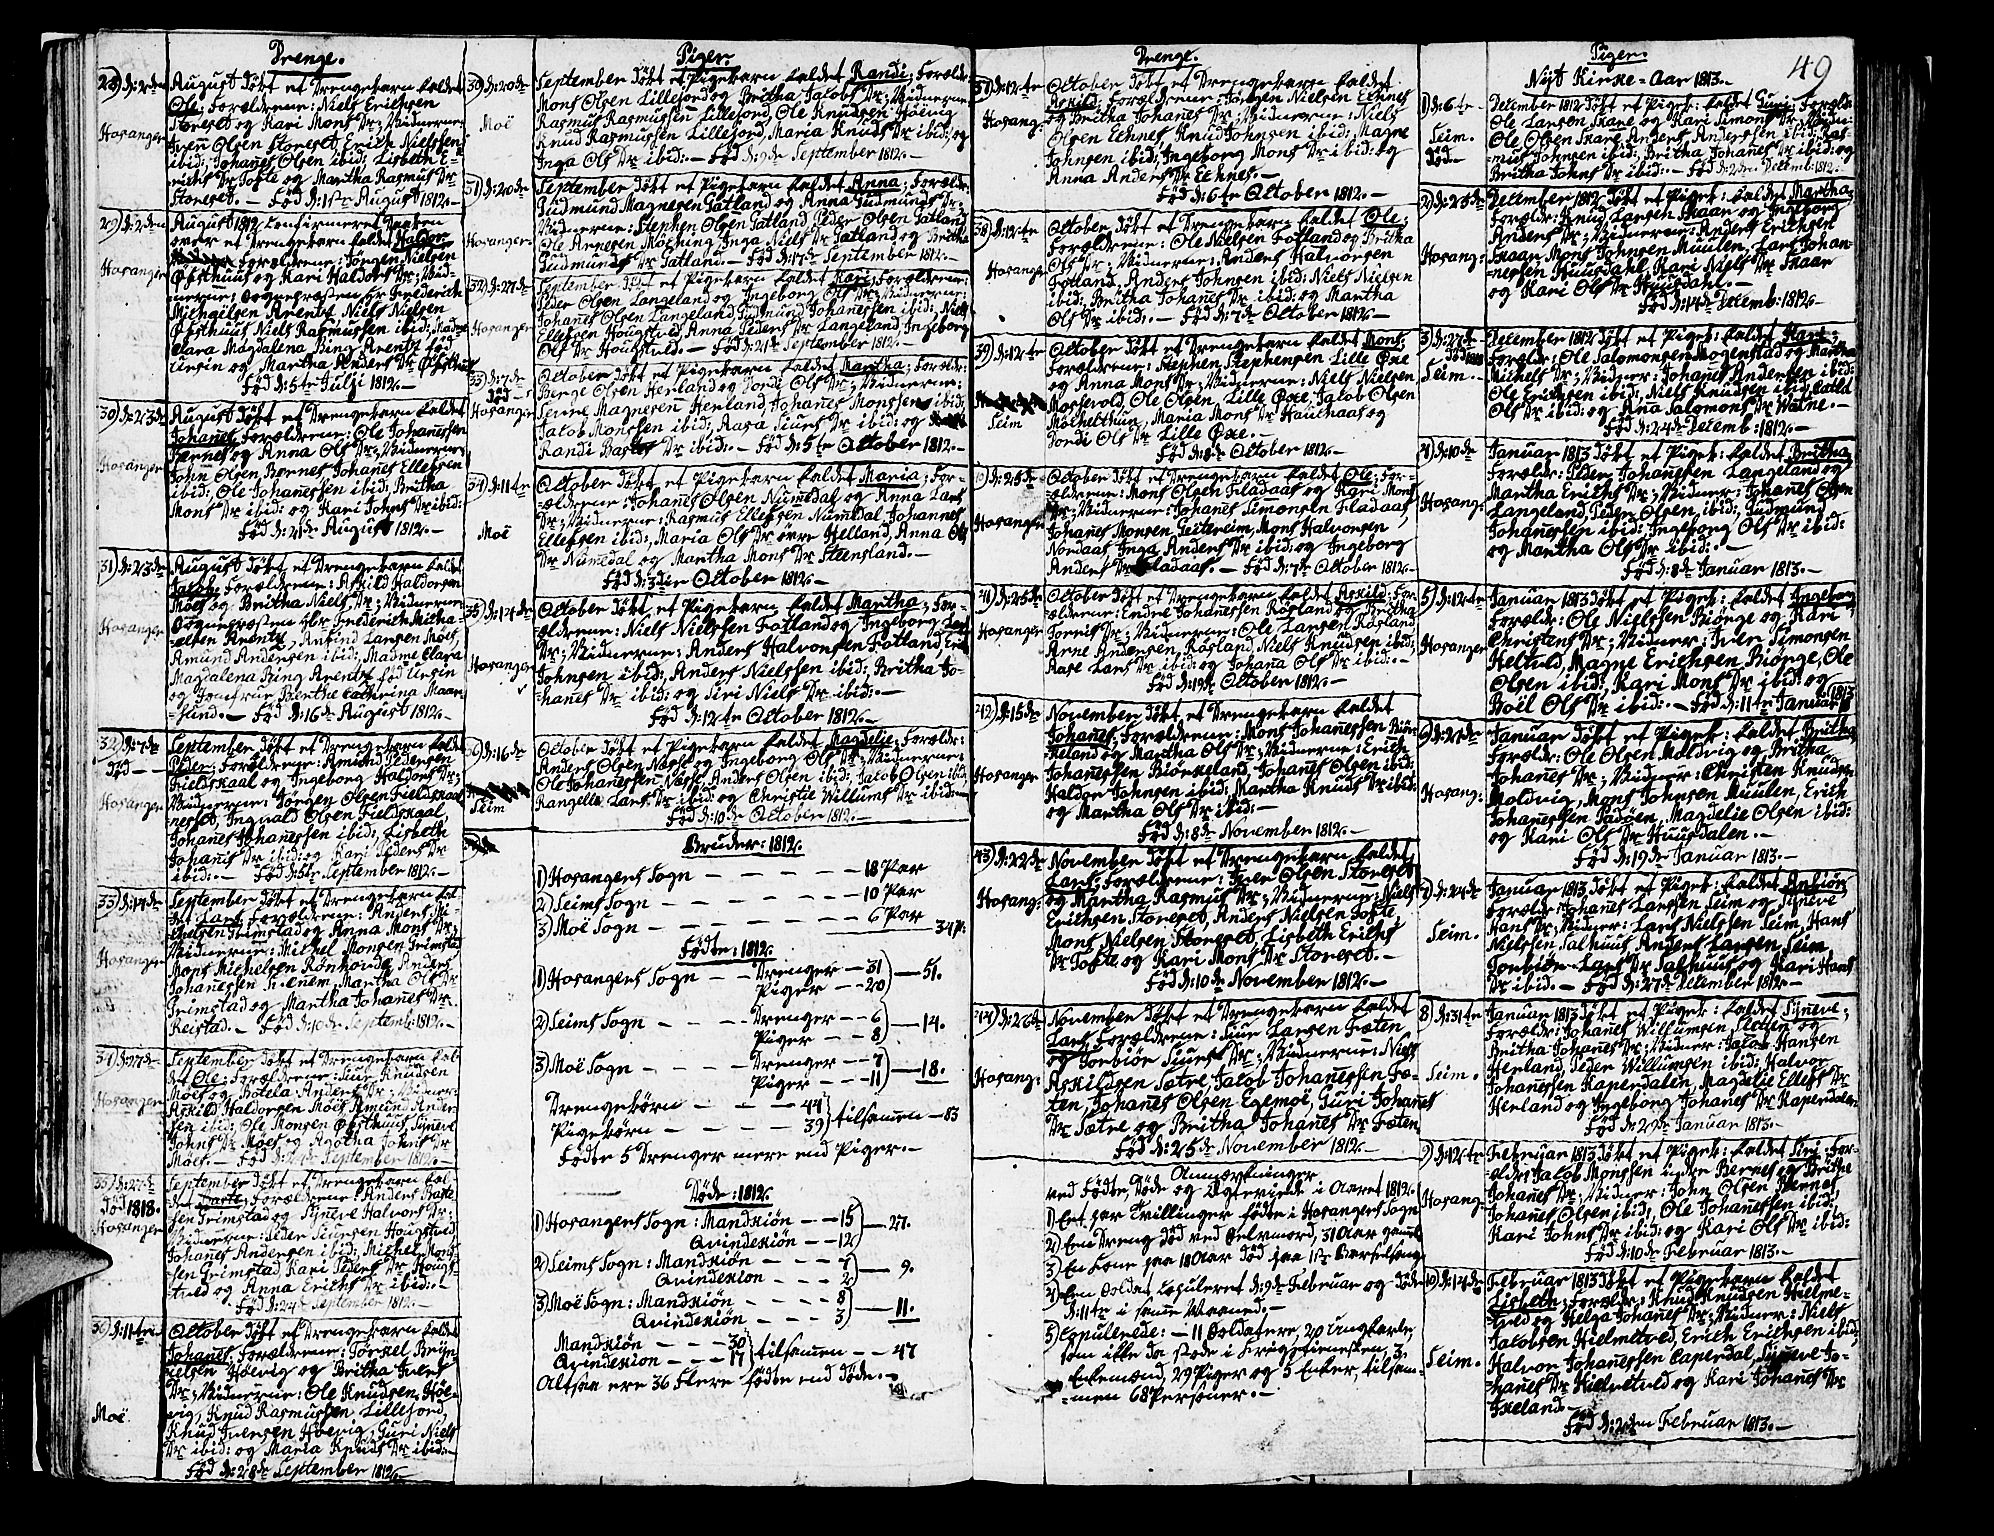 Drenge.
28) d: 2den August døbt et Drengebarn kaldet
Ole; Forældrene: Niels Erichsen
Hosanger Storeset og Kari Mons Dr; Vidnerne:
Iver Olsen Storeset, Erich Nielssen
ibid; Johanes Olsen ibid; Lisbeth E-
richs Dr Tofte og Martha Rasmus Dr
Storeset. — Fød d: 1ste August 1812. —
29) d: 2den August 1812 Confirmeret Daaben
over et Drengebarn kaldet Haldor
Forældrene: Jørgen Nielsen
Hosanger Øfsthuus og Kari Haldors Dr; Vid-
nerne: Sognepræsten Hr Frederich
Michaelsen Arentz, Niels Nielsen
Øfsthuus Niels Rasmussen ibid; Madme
Clara Magdalena Bing Arentz fød
Ursin og Martha Anders Dr Øfsthuus
Fød d: 5te Julji 1812. —
30) d: 23de August døbt et Drengebarn kaldet
Johanes, Forældrene: Ole Johanessen
Hosanger Bernes og Anna Ols Dr; Vidnerne:
John Olsen Bernes Johanes Ellefsen
ibid; Ole Johanessen ibid; Britha
Mons Dr ibid og Kari Johns Dr ibid:
Fød d: 21de August 1812. —
31) d: 23de August døbt et Drengebarn kaldet
Jacob; Forældrene: Askild Haldorsen
Møes og Britha Niels Dr; Vidnerne:
Hosanger Sognepræsten Hr Frederich Micha-
elsen Arentz, Anfind Larsen Møes,
Amund Andersen ibid; Madme Clara
Magdalena Bing Arentz fød Ursin
og Jomfrue Benthe Cathrina Maar-
hund. — Fød d: 16de August 1812. —
32) d: 7de September døbt et Drengebarn kaldet
død — Peder; Forældrene: Amund Pedersen
Fieldskaal og Ingeborg Haldors Dr;
Hosanger Vidnerne: Jørgen Olsen Fieldskaal
nesset, Ingvald Olsen Fieldskaal,
Johanes Johanessen ibid, Lisbeth
Johanes Dr ibid; og Kari Peders Dr
ibid. — Fød d: 5te September 1812. —
33) d: 14de September døbt et Drengebarn kal-
det Lars; Forældrene: Anders Mi-
chelsen Trimstad og Anna Mons Dr;
Hosanger Vidnerne: Michel Monsen Trimstad
Mons Michelsen Rønhovde, Anders
Johanesen Ti-enem, Martha Ols Dr
Trimstad og Martha Johanes Dr
Reistad. — Fød d: 10de Septemb: 1812. —
34) d: 27de September døbt et Drengebarn kal-
det Ole; Forældrene: Siur Knudsen
Møes og Botela Anders Dr; Vidner:
Hosanger Askild Haldorsen Møes Amund Ander
sen ibid; Ole Monsen Øfsthuus, Synneve
Johns Dr Møes og Agatha Johns Dr
Møes. — Fød d: September 1812. —
35) d: 27de September døbt et Drengebarn kal-
død 1818. det Baste; Forældrene: Anders Baste
Hosanger sen Trimstad og Synneve Halvors Dr;
Vidnerne: Peder Siursen Hougstved
Johanes Andersen ibid; Michel Mon-
sen Trimstad Kari Peders Dr Hougs-
tved og Anna Erichs Dr ibid: —
Fød d: 24de September 1812. —
36) d: 11te October døbt et Drengebarn kaldet
Johanes; Forældrene: Torkel Bryn-
kelsen Høevig og Britha Ivers
Dr; Vidnerne: Ole Knudsen Høe-
Moë. vig, Knud Rasmussen Lillefjord,
Knud Iversen Høevig; Guri Niels
Dr ibid: og Maria Knuds Dr ibid: —
Fød d: 28de September 1812. —
Piger.
30) d: 20de September døbt et Pigebarn kaldet Randi; Foræld:
Mons Olsen Lillefjord og Britha Jacobs Dr; Vidnerne:
Moë Rasmus Rasmussen Lillefjord, Ole Knudsen Høevig
Knud Rasmussen Lillefjord, Maria Knuds Dr ibid; og
Inga Ols Dr ibid: — Fød d: 9de September 1812. —
31) d: 20de September døbt et Pigebarn kaldet Anna; Foræld:
Gudmund Magnesen Tatland og Anna Gudmunds Dr;
Hosanger Vidnerne: Stephen Olsen Tatland, Peder Olsen Tatland
Ole Arnesen Mosning Inga Niels Dr Tatland og Britha
Gudmunds Dr Tatland. — Fød d: 17de September 1812. —
32) d: 27de September døbt et Pigebarn kaldet Kari; Forældrene:
Peder Olsen Langeland og Ingeborg Ols Dr; Vidnerne:
Hosanger Johanes Olsen Langeland Gudmund Johanessen ibid; Niels
Ellefsen Hougstved Anna Peders Dr Langeland, Ingeborg
Ols Dr Hougstved. — Fød d: 21de September 1812. —
33) d: 7de October døbt et Pigebarn kaldet Martha; Foræld:
død — Børge Olsen Henland og Jordi Ols Dr; Vidnerne:
Hosanger Iver Magnesen Henland, Johanes Monssen ibid;
Jacob Monssen ibid; Aasa Siurs Dr ibid; og
Randi Bastes Dr ibid: — Fød d: 5te October 1812. —
34) d: 11te October døbt et Pigebarn kaldet Maria; For-
ældrene: Johanes Olsen Numedal og Anna Lars
Dr; Vidnerne: Rasmus Ellefsen Numedal, Johannes
Moë Ellefsen ibid; Maria Ols Dr øvre Helland, Anna Ols
Dr Numedal og Martha Mons Dr Steensland. —
Fød d: 3die October 1812. —
35) d: 14de October døbt et Pigebarn kaldet Martha; For-
ældrene: Niels Nielssen Fotland og Ingeborg Lars
Dr; Vidnerne: Anders Halvorsen Fotland, Erik
Hosanger Johnsen ibid; Anders Nielssen ibid; Britha Jo-
hanes Dr ibid; og Siri Niels Dr ibid: —
Fød d: 12te October 1812. —
36) d: 16de October døbt et Pigebarn kaldet Magdelie; Forældr:
Anders Olsen Næse og Ingeborg Ols Dr; Vidnerne:
Ole Johanessen Næse, Anders Olsen ibid; Jacob Olsen ibid
Seim Rangelle Lars Dr ibid; og Christie Willums Dr ibid: —
Fød d: 10de October 1812. —
Bruder: 1812.
1) Hosangers Sogn — — — — — 18 Par
2) Seims Sogn — — — — — 10 Par
3) Moë Sogn — — — — — 6 Par 34 P:
Fødte: 1812.
1) Hosangers Sogn — — Drenger — 31
Piger — — 20) — 51.
2) Seims Sogn — — — Drenger — — 6
Piger — — 8) — 14.
3) Moë Sogn — — — — Drenger — — 7
Piger — — 11) — 18.
Drengebørn — — — — 44
Pigebørn — — — — 39} tilsamen — 83
Fødte 5 Drenger mere end Piger. —
Døde: 1812.
1) Hosangers Sogn: Mandkiøn — — 15
Qvindekiøn — — 12) — 27.
2) Seims Sogn: Mandkiøn — — — 7
Qvindekiøn — — — 2) — 9.
3) Moë Sogn: Mandkiøn — — — — 8
Qvindekiøn — — — — 3) — 11.
Mandkiøn — — — 30
Qvindekiøn — — — 17} tilsamen — — 47
Altsaa ere 36 Flere fødte end Døde. —
Drenge.
37) d: 12te October døbt et Drengebarn kaldet
Askild; Forældrene: Jørgen Nielsen Eehnes
Hosang: og Britha Johanes Dr; Vidnerne: Niels
Olsen Eehnes Knud Johnsen ibid; Magne
Johnsen ibid; Ingeborg Mons Dr ibid; og
Anna Anders Dr Eehnes. —
Fød d: 6te October 1812. —
38) d: 12te October døbt et Drengebarn kaldet Ole;
Forældrene: Ole Nielsen Fotland og Britha
Ols Dr; Vidnerne: Anders Halvorsen
Hosanger Fotland, Anders Johnsen ibid; Niels Nielsen
ibid; Britha Johanes Dr ibid; og Martha
Ols Dr ibid: — Fød d: 7de October 1812. —
39) d: 12te October døbt et Drengebarn kaldet Mons;
Forældrene: Stephen Stephensen Lille Øxe
og Anna Mons Dr; Vidnerne: Niels Nielsen
Seim Mosevold, Ole Olsen Lille Øxe, Jacob Olsen
Mølhelthun, Maria Mons Dr Hauchaas og
Jordi Ols Dr Lille Øxe. —
Fød d: 8de October 1812. —
40) d: 25de October døbt et Drengebarn kaldet Ole; For-
ældrene: Mons Olsen Fladaas og Kari Mons
Dr; Vidnerne: Johanes Simonsen Fladaas,
Hosanger Johanes Monsen Geitreim, Mons Halvorsen
Nordaas, Inga Anders Dr ibid; og Ingeborg
Anders Dr Fladaas. — Fød d: 7de October 1812. —
41) d: 25de October døbt et Drengebarn kaldet Askild; For-
ældrene: Endre Johanessen Røsland og Britha
Torris Dr; Vidnerne: Ole Larsen Røsland
Hosanger Arne Andersen Røsland, Niels Knudsen ibid;
Aase Lars Dr ibid; og Johana Ols Dr ibid: —
Fød d: 19de October 1812. —
42) d: 15de November døbt et Drengebarn kaldet
Johanes; Forældrene: Mons Johanessen Biør-
keland og Martha Ols Dr; Vidnerne: Erich
Hosanger Johanessen Biørkeland, Johanes Olsen ibid;
Haldor Johnsen ibid; Martha Knuds Dr ibid:
og Martha Ols Dr ibid: —
Fød d: 8de November 1812. —
43) d: 22de November døbt et Drengebarn kaldet
Lars; Forældrene: Iver Olsen Storeset
Hosang: og Martha Rasmus Dr; Vidnerne: Niels
Erichsen Storeset, Anders Nielsen Tofte,
Mons Nielsen Storeset, Lisbeth Erichs
Dr Tofte og Kari Mons Dr Storeset. —
Fød d: 10de November 1812. —
44) d: 26de November døbt et Drengebarn kaldet
Lars; Forældrene: Siur Larsen Fæten
og Torbiør Siurs Dr; Vidnerne: Niels
Hosang: Askildsen Sætre, Jacob Johanessen Fæ-
ten, Johanes Olsen Egemoe, Guri Johanes
Dr Sætre og Britha Johanes Dr Fæten
Fød d: 25de November 1812. —
Anmærkninger
ved Fødte, Døde og Ægteviede i Aaret 1812.
1) Eet par Tvillinger fødte i Hosangers Sogn
2) Een Dreng død ved Selvmord, 31 Aar gaml:
3) En Kone paa 18 Aar død paa 1ste Barselseng
4) Een Soldat Copuleret d: 9de Februar og døde
d: 11te i samme Maaned. —
5) Copulerede: — 11 Soldatere, 20 Ungkarle,
som ikke da stode i Krigstienesten, 3
Enkemænd, 29 Piger og 5 Enker, tilsam-
men 68 Personer. —
49
Piger.
Nyt Kirke-Aar 1813.
1) d: 6te December 1812 døbt et Pigeb: kaldet Guri; Foræld:
Ole Larsen Skare og Kari Simons Dr; Vidn:
Seim. Ole Olsen Skare, Anders Anderssen ibid; Ras-
død — mus Johnsen ibid; Britha Johanes Dr ibid; og
Britha Johns Dr ibid: — Fød d: 2den Decemb: 1812.
2) d: 26de December 1812 døbt et Pigeb: kaldet Martha;
Forældr: Knud Larsen Skaar og Ingeborg
Anders Dr; Vidnerne: Anders Erichsen
Hosang: Skaar Mons Johnsen Muulen, Lars Johan-
nessen Huusdahl, Kari Niels Dr Skaar
og Kari Ols Dr Huusdahl. —
Fød d: 14de Decemb: 1812. —
3) d: 27de December 1812 døbt et Pigeb: kaldet Kari;
Forældr: Ole Salomonsen Mogenstad og Martha
Seim. Michels Dr; Vidner: Johanes Andersen ibid:
Ole Erichsen ibid; Niels Knudsen ibid,
Ols Dr ibid; og Ana Salomons Dr Watne. —
Fød d: 24de Decemb: 1812. —
4) d: 10de Januar 1813 døbt et Pigeb: kaldet Britha
Forældr: Peder Johanessen Langeland og
Martha Erichs Dr; Vidner: Johanes Olsen
Hosang: Langeland, Peder Olsen, ibid; Gudmund
Johanessen ibid; Ingeborg Ols Dr ibid:
og Martha Ols Dr ibid: —
Fød d: 8de Januar 1813. —
5) d: 12te Januar 1813 døbt et Pigeb: kaldet Ingeborg
Forældr: Ole Nielsen Biørge og Kari
Christens Dr; Vidner: Iver Simonsen
Hosanger Heltved, Magne Erichsen Biørge, Ole
Olsen ibid; Kari Mons Dr ibid; og
Boël Ols Dr ibid: — Fød d: 11te Januar 1813
6) d: 21de Januar 1813 døbt et Pigeb: kaldet Britha
Forældr: Ole Olsen Moldvig og Britha
Johanes Dr; Vidner: Christen Knudsen
Hosang: Moldvig, Mons Johnsen Muulen, Erich
Johanessen Padøen, Magdelie Olsen ibid:
og Kari Ols Dr Huusdalen. —
Fød d: 19de Januar 1813. —
7) d: 24de Januar 1813 døbt et Pigeb: kaldet Anbiør
Forældr: Johanes Larssen Seim og Synneve
Hans Dr; Vidner: Lars Nielssen Seim, Hans
Seim. Nielssen Salhuus Anders Larssen Seim
Torbiør Lars Dr Salhuus og Kari Hans
Dr ibid: — Fød d: 27de December 1812 —
8) d: 31te Januar 1813 døbt et Pigeb: kaldet Synneve;
Forældr: Johanes Willumsen Sletten og
Britha Johanes Dr; Vidner: Jacob Hansen
Seim. Herland, Peder Willumsen ibid: Halvor
Johanessen Kaperdalen, Magdelie Ellefs Dr
Herland og Ingeborg Johanes Dr Kaperdalen
Fød d: 29de Januar 1813. —
9) d: 12te Februar 1813 døbt et Pigeb: kaldet Siri; For-
ældr: Jacob Monssen indre Bernes og Brithe
Johanes Dr; Vidner: John Olsen Bernes
Hosang: Johanes Olsen ibid, Ole Johanessen ibid,
Kari Johns Dr ibid; og Kari Ols Dr ibid:
Fød d: 10de Februar 1813. —
10) d: 14de Februar 1813 døbt et Pigebarn kaldet
Lisbeth; Forældr: Knud Knudsen Hielme-
tved og Helga Johanes Dr; Vidner: Niels
Jacobsen Hielmetved, Erich Erichsen ibid;
Seim. Halvor Johanessen Caperdal, Synneve Jo-
hanes Dr Hielmetveld og Kari Johanes Dr
Ixeland. —
Fød d: 2den Februar 1813. —